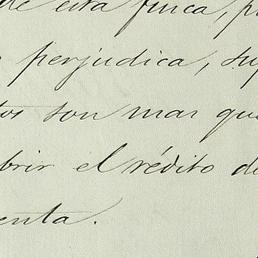 de esta finca, p
perjudica, su
tos son mas qu
brir el rédito de
enta.